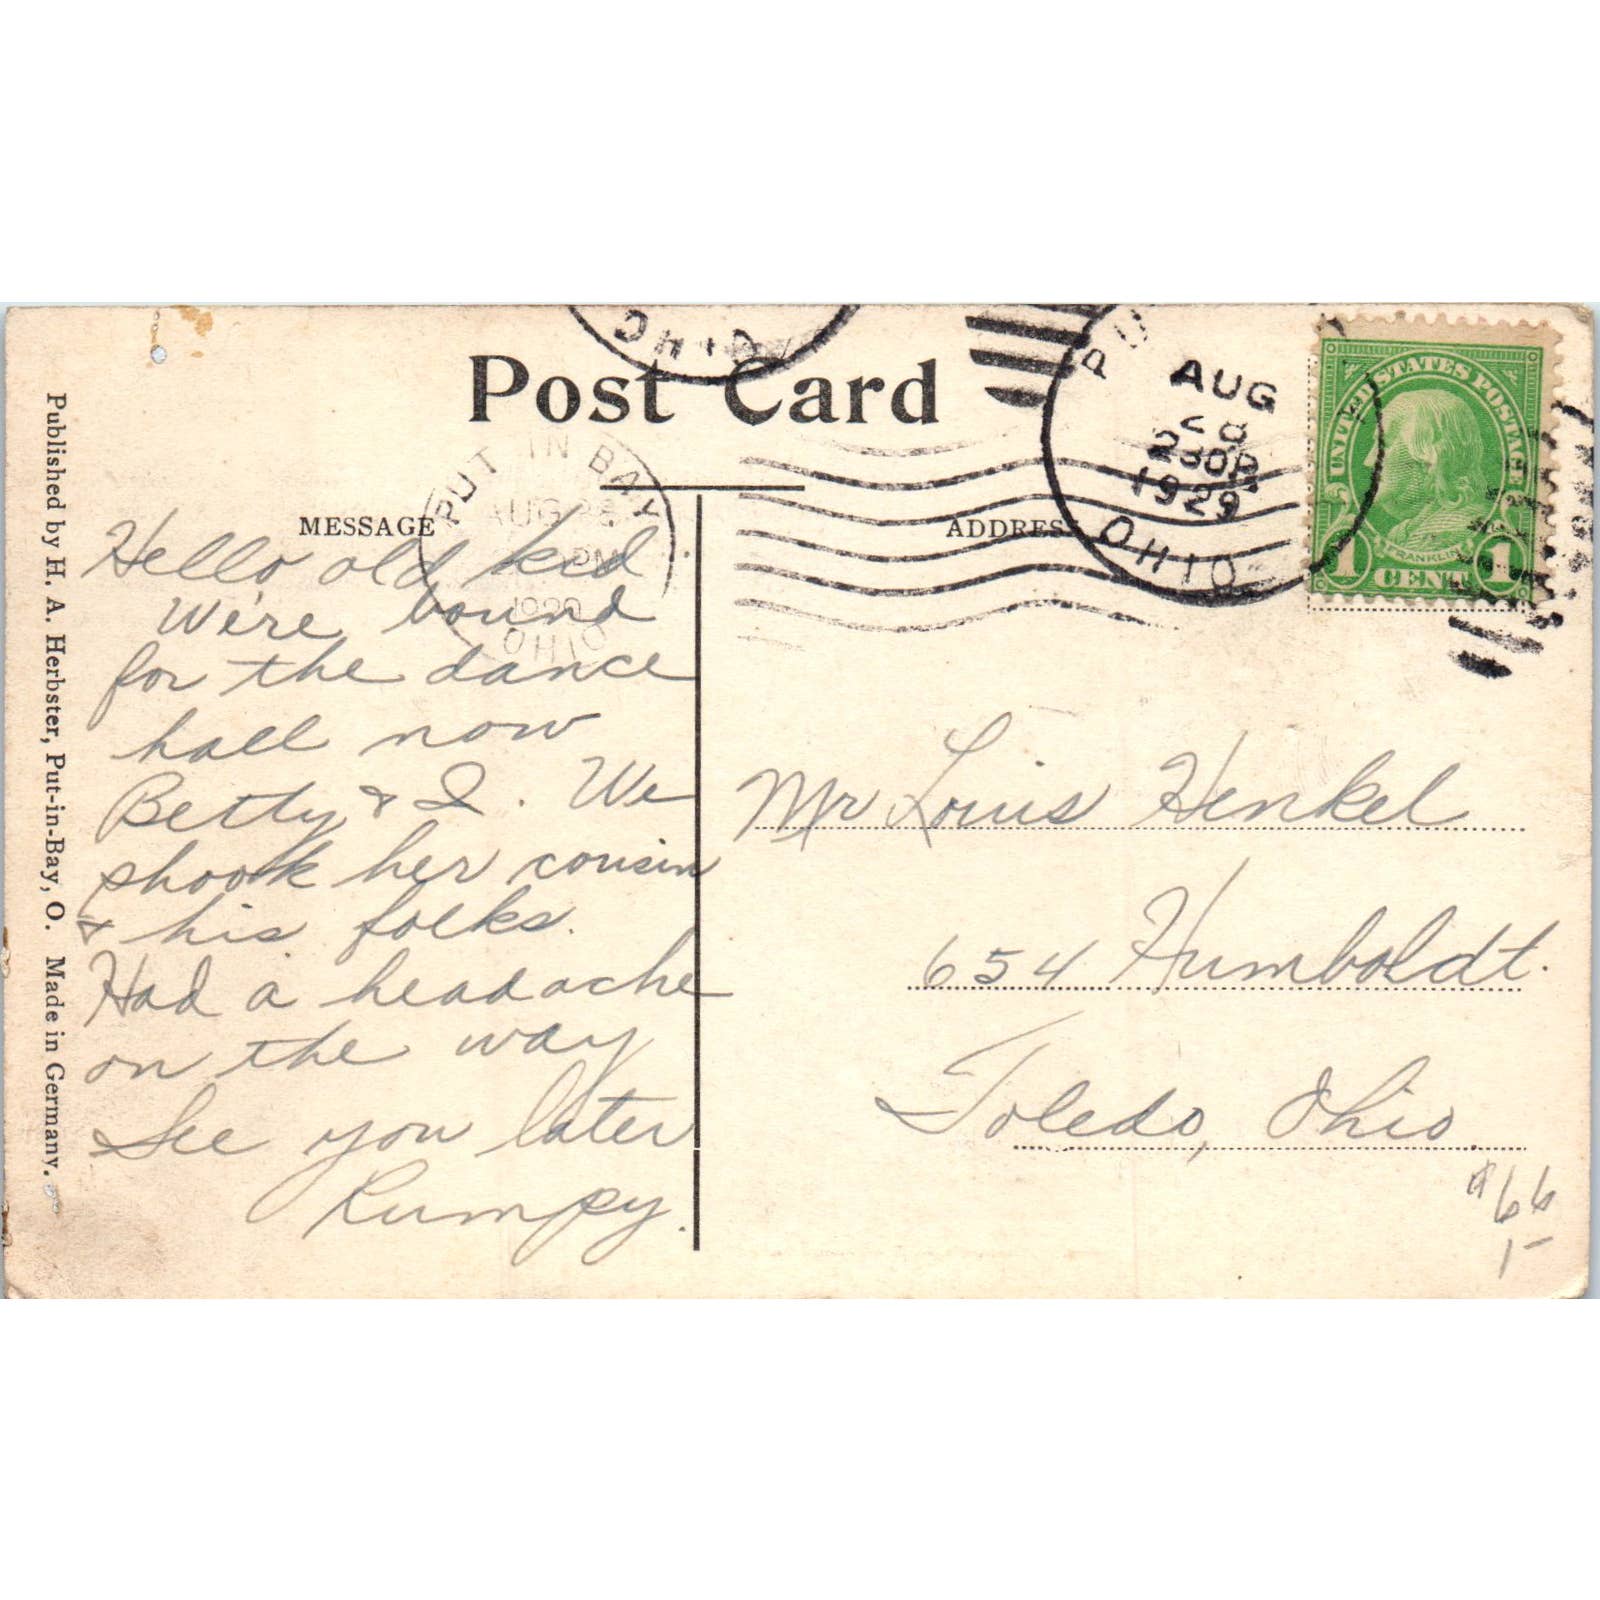 OHIO
Post Card
PUT IN BAY
AUG 28
PM
1929
OHIO
PU
AUG
28
230P
1929
OHIO
UNITED STATES POSTAGE
FRANKLIN
1 CENT 1
MESSAGE
ADDRESS
Hello old kid
We're bound
for the dance
hall now
Betty & I. We
shook her cousin
& his folks.
Had a headache
on the way
See you later
Rumpy.
Mr Louis Henkel
654 Humboldt.
Toledo, Ohio.
66
1-
Published by H. A. Herbster, Put-in-Bay, O. Made in Germany.